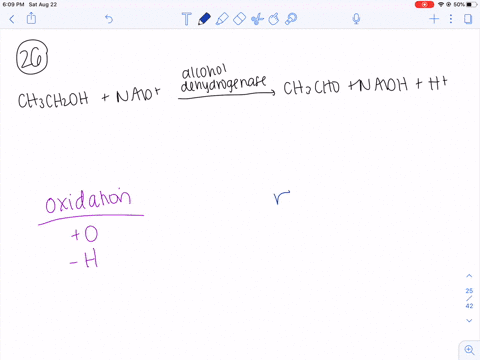 6:09 PM Sat Aug 22
50%
26
CH3CH2OH + NAD+ alcohol dehydrogenase CH3CHO + NADH + H+
oxidation
+O
-H
r
25
/
42